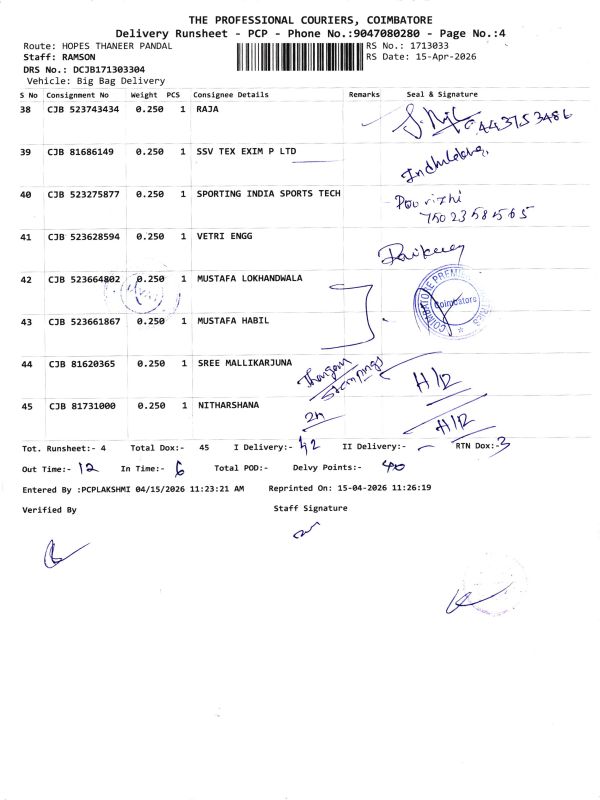 THE PROFESSIONAL COURIERS, COIMBATORE
Delivery Runsheet - PCP - Phone No.:9047080280 - Page No.:4
Route: HOPES THANEER PANDAL RS No.: 1713033
Staff: RAMSON RS Date: 15-Apr-2026
DRS No.: DCJB171303304
Vehicle: Big Bag Delivery
S No Consignment No Weight PCS Consignee Details Remarks Seal & Signature
38 CJB 523743434 0.250 1 RAJA
39 CJB 81686149 0.250 1 SSV TEX EXIM P LTD
40 CJB 523275877 0.250 1 SPORTING INDIA SPORTS TECH
7502358565
41 CJB 523628594 0.250 1 VETRI ENGG
42 CJB 523664802 0.250 1 MUSTAFA LOKHANDWALA
Coimbatore
43 CJB 523661867 0.250 1 MUSTAFA HABIL
44 CJB 81620365 0.250 1 SREE MALLIKARJUNA Thangam Stampings H/R
45 CJB 81731000 0.250 1 NITHARSHANA H/R
Tot. Runsheet:- 4 Total Dox:- 45 I Delivery:- 42 II Delivery:- - RTN Dox:-3
Out Time:- 12 In Time:- 6 Total POD:- Delvy Points:- 40
Entered By :PCPLAKSHMI 04/15/2026 11:23:21 AM Reprinted On: 15-04-2026 11:26:19
Verified By Staff Signature